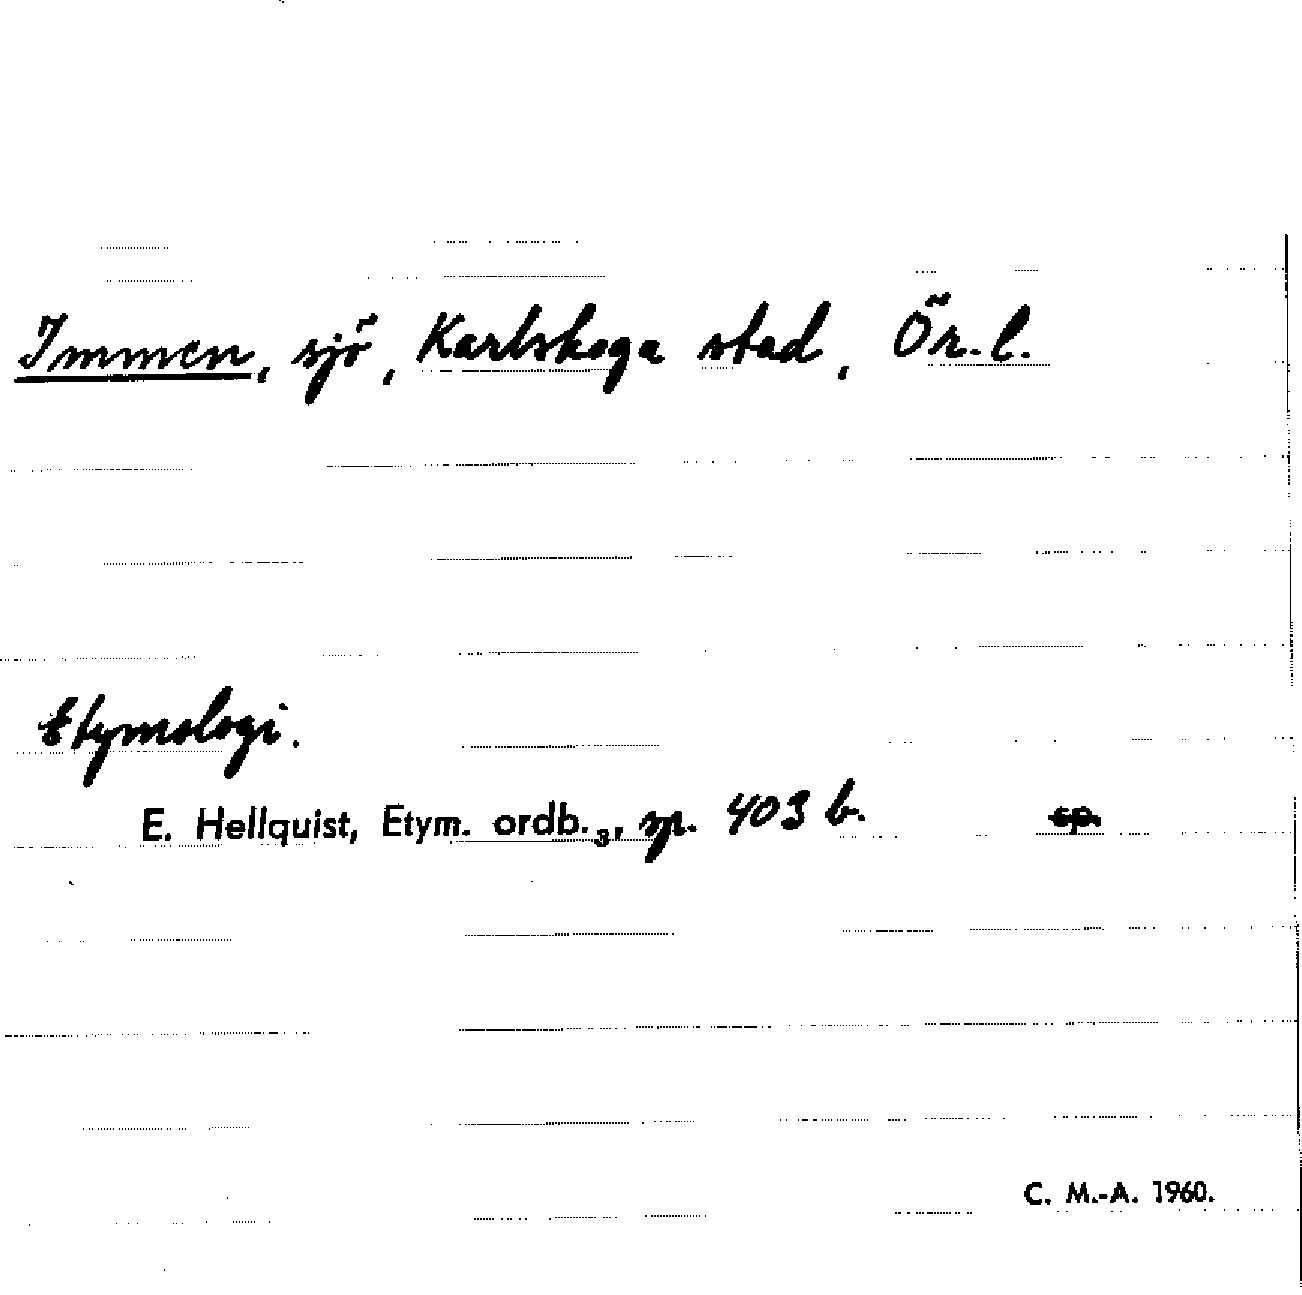 Immen, sjö, Karlskoga stad, Ör. l.
Etymologi.
E. Hellquist, Etym. ordb.₃, sp. 403 b. sp.
C. M.-A. 1960.